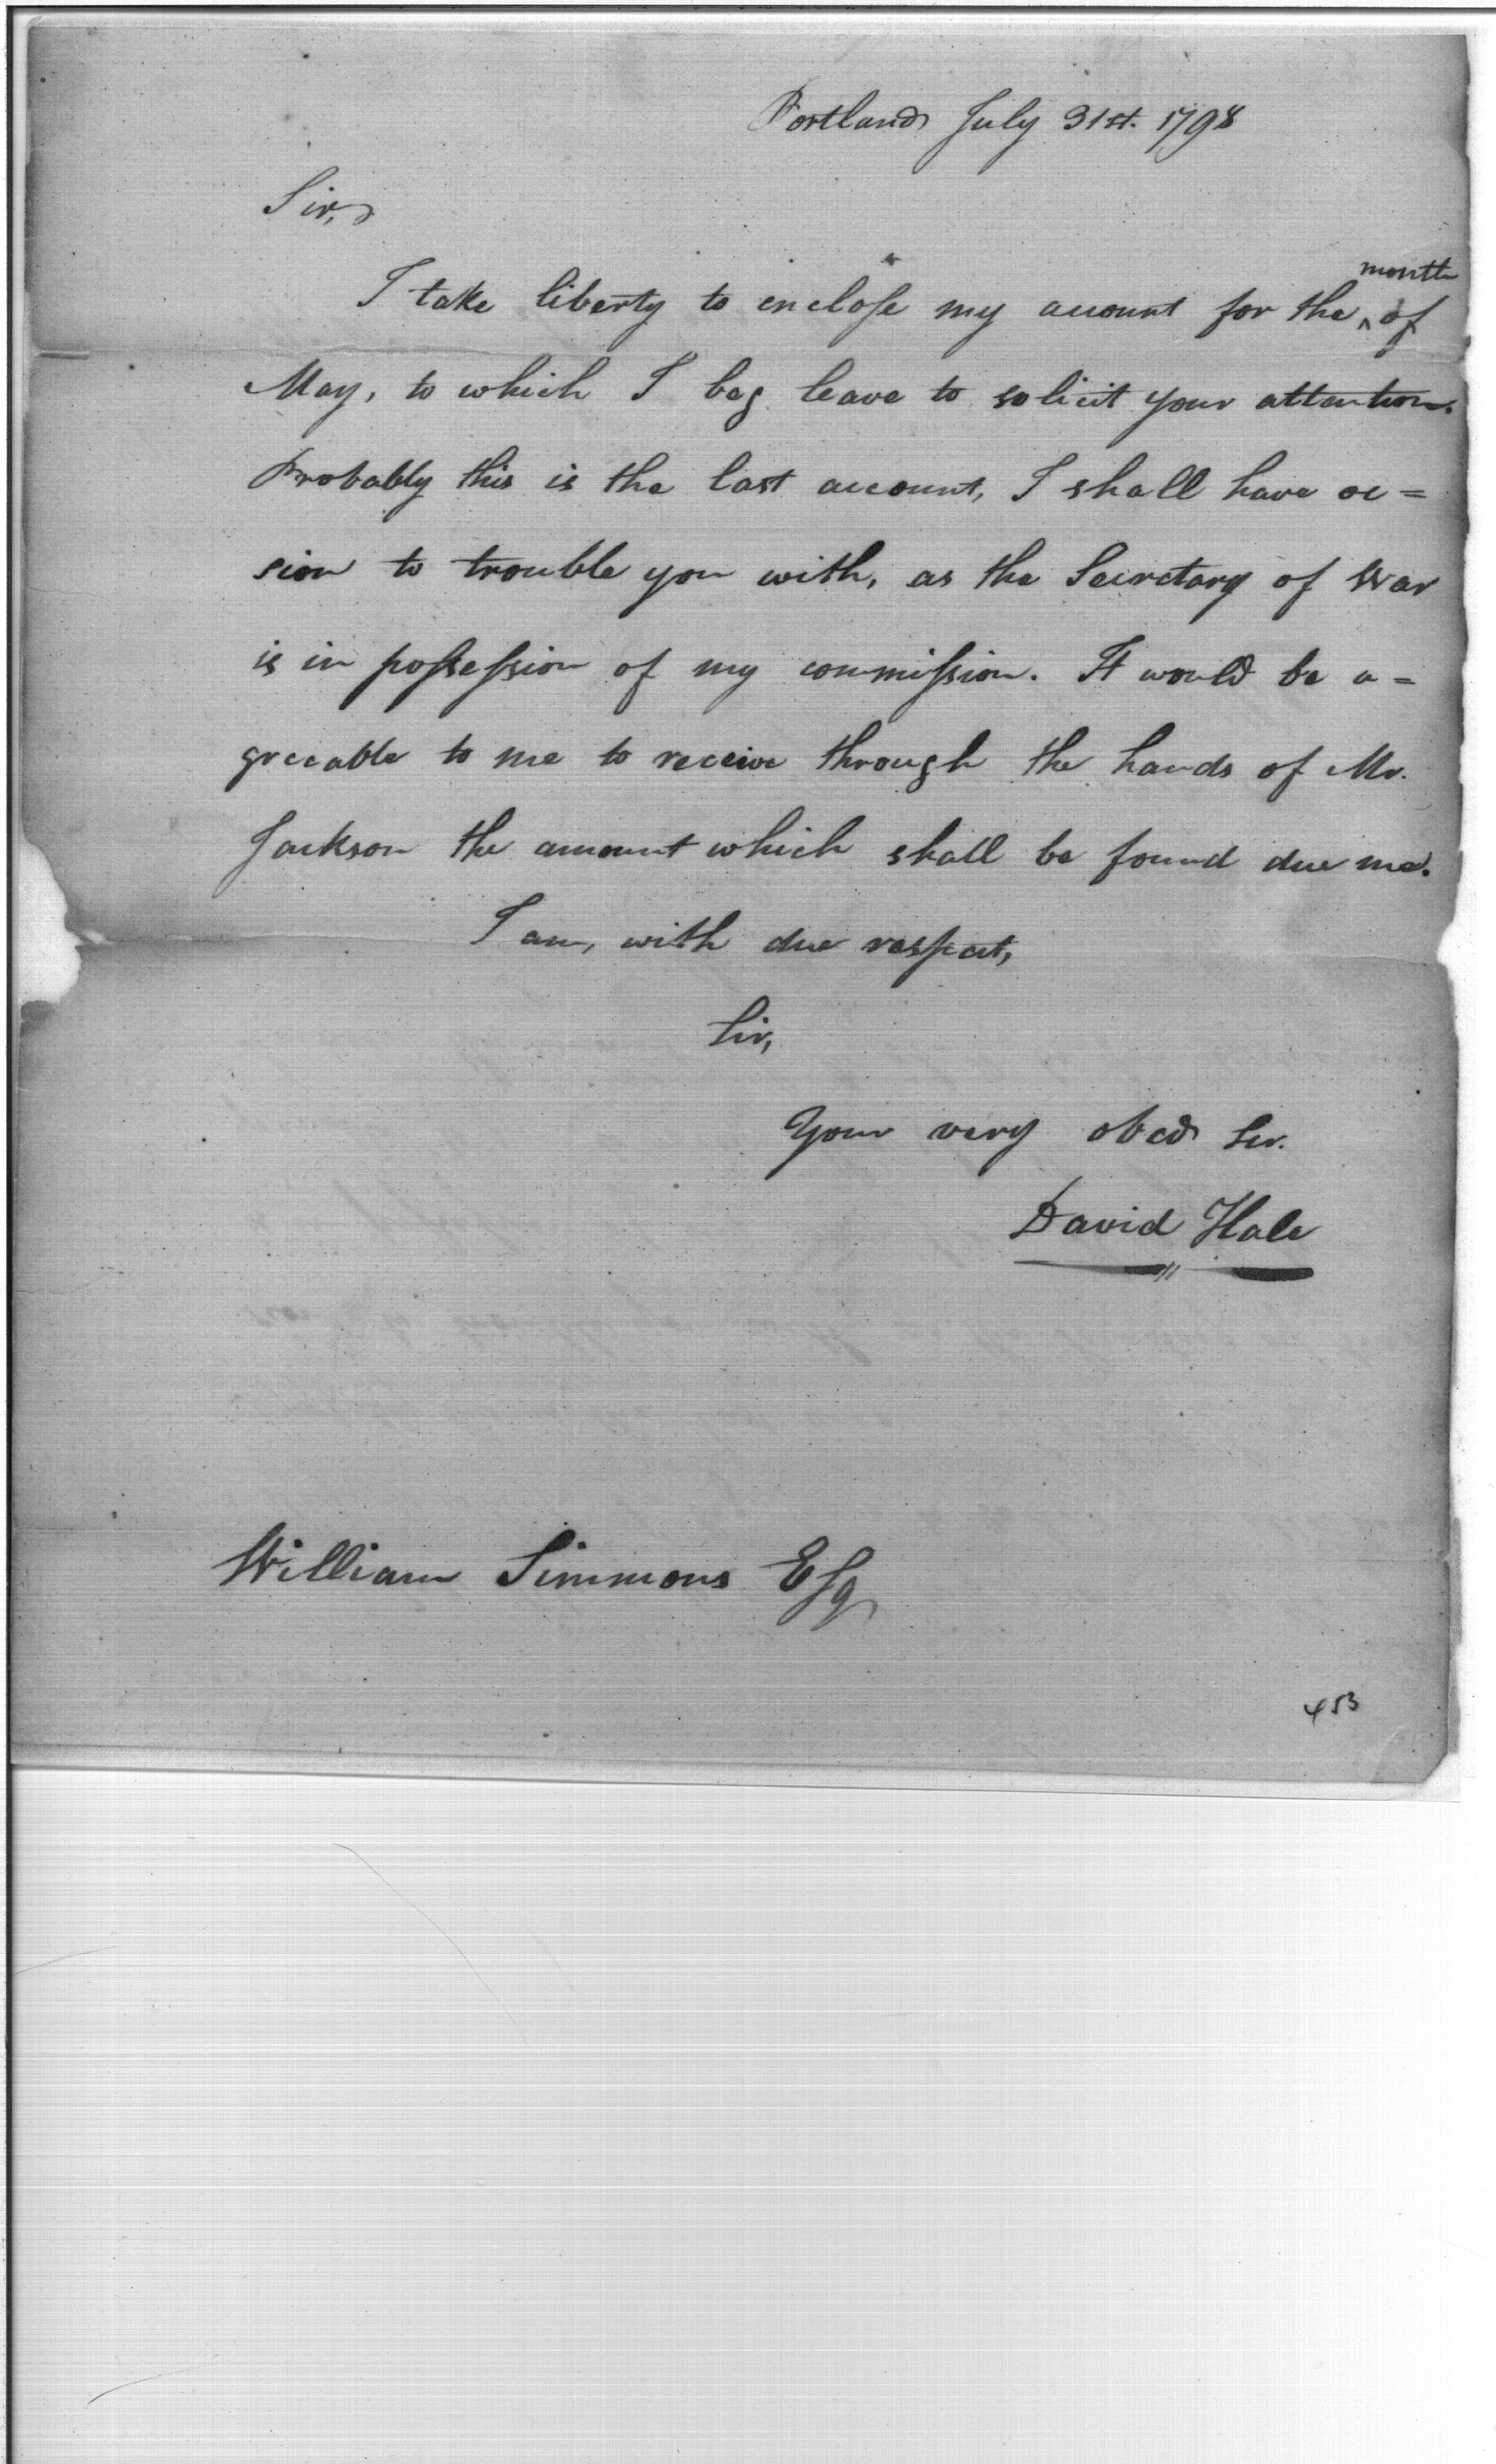 Portland July 31st. 1798
Sir,
I take liberty to enclose my account for the ^month of
May, to which I beg leave to solicit your attention.
Probably this is the last account, I shall have oc=
sion to trouble you with, as the Secretary of War
is in possession of my commission. It would be a=
greeable to me to receive through the hands of Mr.
Jackson the amount which shall be found due me.
I am, with due respect,
Sir,
Your very obed Ser.
David Hale
William Simmons Esq
453